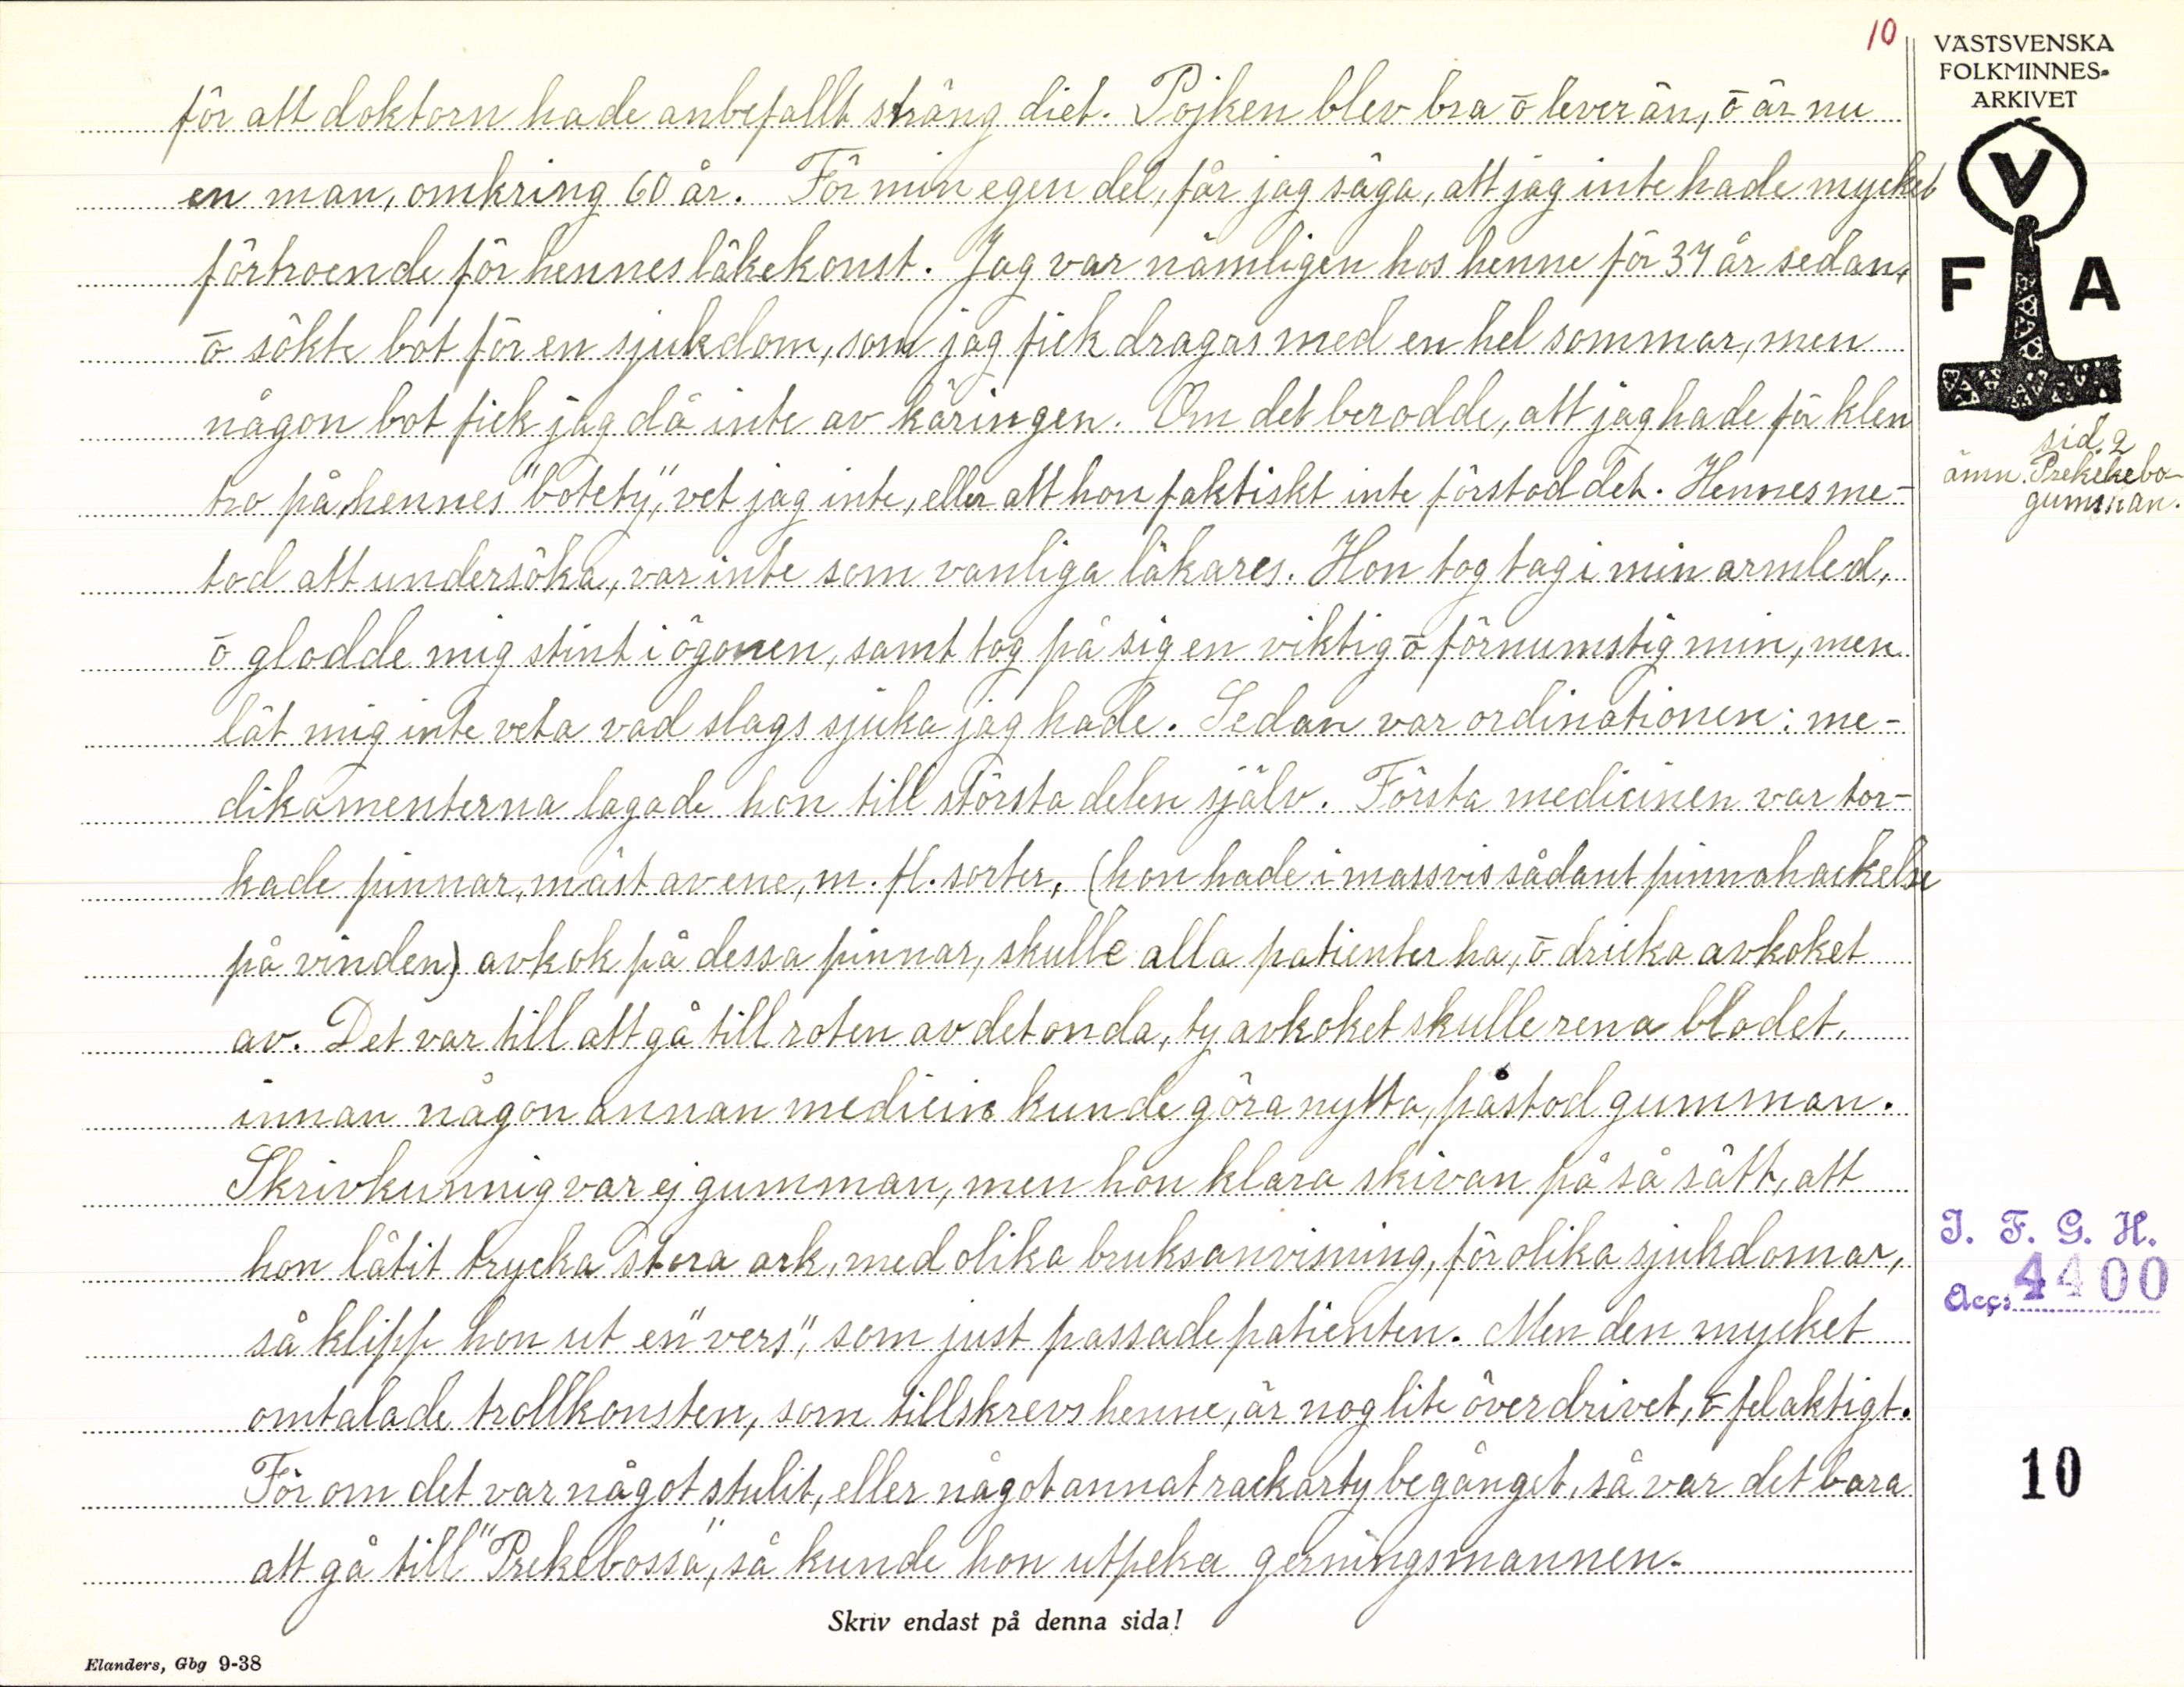 10
för att doktorn hade anbefallt sträng diet. Pojken blev bra ō lever än, ō är nu
en man, omkring 60 år. För min egen del, får jag säga, att jag inte hade mycket
förtroende för hennes läkekonst. Jag var nämligen hos henne för 37 år sedan,
ō sökte bot för en sjukdom, som jag fick dragas med en hel sommar, men
någon bot fick jag då inte av käringen. Om det berodde, att jag hade för klen
tro på hennes "botety", vet jag inte, eller att hon faktiskt inte förstod det. Hennes me-
tod att undersöka, var inte som vanliga läkares. Hon tog tag i min armled,
ō glodde mig stint i ögonen, samt tog på sig en viktig ō förnumstig min, men
lät mig inte veta vad slags sjuka jag hade. Sedan var ordinationen: me-
dikamenterna lagade hon till största delen själv. Första medicinen var tor-
kade pinnar, mäst av ene, m. fl. sorter, (hon hade i massvis sådant pinnahackelse
på vinden) avkok på dessa pinnar, skulle alla patienter ha, ō dricka avkoket
av. Det var till att gå till roten av det onda, ty avkoket skulle rena blodet,
innan någon annan medicin kunde göra nytta, påstod gumman.
Skrivkunnig var ej gumman, men hon klara skivan på så sätt, att
hon låtit trycka stora ark, med olika bruksanvisning, för olika sjukdomar,
så klipp hon ut en "vers", som just passade patienten. Men den mycket
omtalade trollkonsten, som tillskrevs henne, är nog lite överdrivet, ō felaktigt.
För om det var något stulit, eller något annat rackarty begånget, så var det bara
att gå till "Prekebossa", så kunde hon utpeka gerningsmannen.
Skriv endast på denna sida!
Elanders, Gbg 9-38
VÄSTSVENSKA
FOLKMINNES-
ARKIVET
V
F A
sid. 2
ämn. Prekekebo-
gumman.
I. F. G. H.
Acc: 4400
10